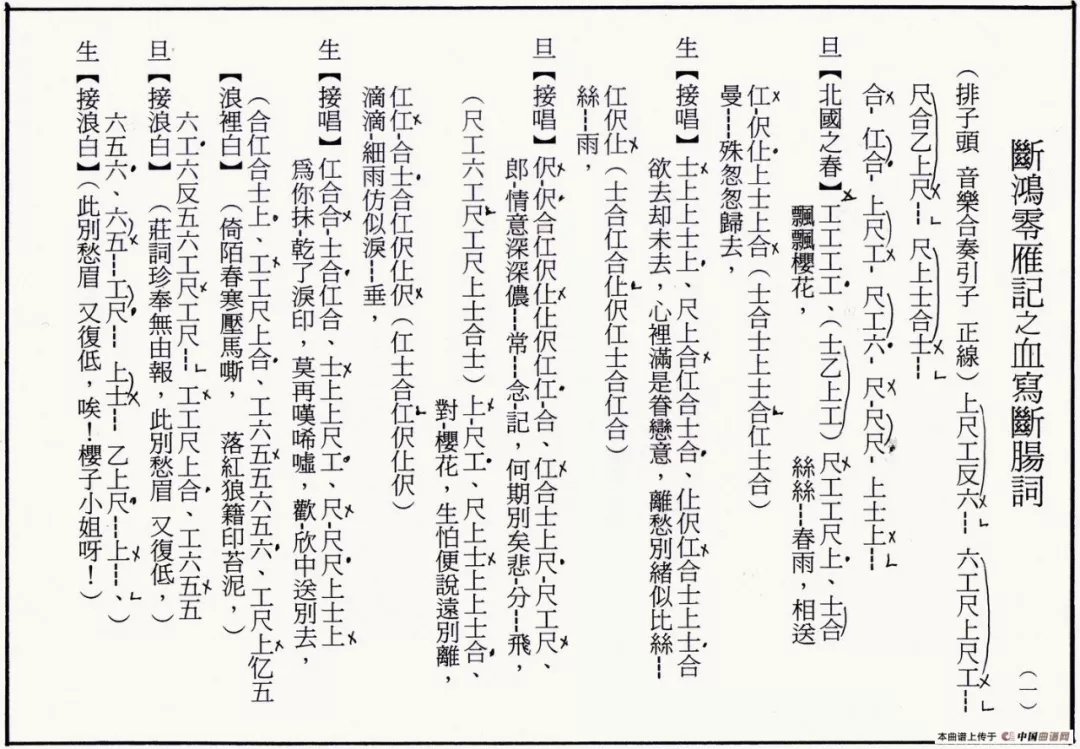 斷鴻零雁記之血寫斷腸詞 （一）
（排子頭 音樂合奏引子 正線）上尺工反六┆ 六工尺上尺工┆
尺合乙上尺┆ 尺上士合士┆
合-仜合·上尺工-尺工六·尺-尺尺·上士上┆
旦【北國之春】工工工工、（士乙上工）尺工工尺上、士合
飄飄櫻花， 絲絲┆春雨，相送
仜-伬仩上士上合（士合士上士合仜士合）
曼┆殊怱怱歸去，
生【接唱】士上上士上、尺上合仜合士合、仩伬仜合士上士合
欲去却未去，心裡滿是眷戀意，離愁別緒似比絲┆
仜伬仩（士合仜合仩伬仜士合仜合）
絲┆雨，
旦【接唱】伬-伬合仜伬仩仩伬仜仜-合、仜合士上尺-尺工尺、
郎-情意深深儂┆常┆念-記，何期別矣悲-分┆飛，
（尺工六工尺工尺上士合士）上-尺工、尺上士上上士合、
對-櫻花，生怕便說遠別離，
仜仜-合士合仜伬仩伬（仜士合仜伬仩伬）
滴滴-細雨仿似淚┆垂，
生【接唱】仜合合-士合仜合、士上上尺工、尺-尺尺上士上
爲你抹-乾了淚印，莫再嘆唏噓，歡-欣中送別去，
（合仜合士上、工工尺上合、工六五五六五六、工尺上亿五
【浪裡白】（倚陌春寒壓馬嘶， 落紅狼籍印苔泥，）
六工六反五六工尺工尺┆ 工工尺上合、工六五五
旦【接浪白】（莊詞珍奉無由報，此別愁眉 又復低，）
六五六、六五┆工尺┆ 上士┆ 乙上尺┆上┆、）
生【接浪白】（此別愁眉 又復低，唉！櫻子小姐呀！）
本曲谱上传于 中国曲谱网